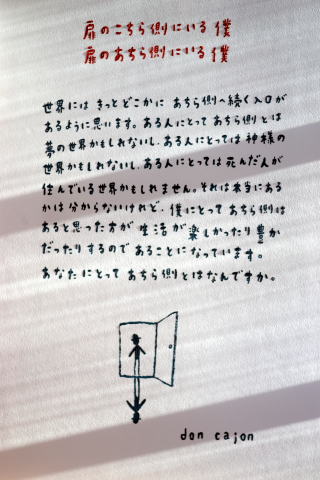 扉のこちら側にいる僕
扉のあちら側にいる僕
世界には きっとどこかに あちら側へ続く入口が
あるように思います。ある人にとって あちら側とは
夢の世界かもしれないし、ある人にとっては 神様の
世界かもしれないし、ある人にとっては 死んだ人が
住んでいる世界かもしれません。それは本当にある
かは分からないけれど、僕にとって あちら側は
あると思った方が 生活が楽しかったり豊か
だったりするので あることになっています。
あなたにとって あちら側とはなんですか。
don cajon